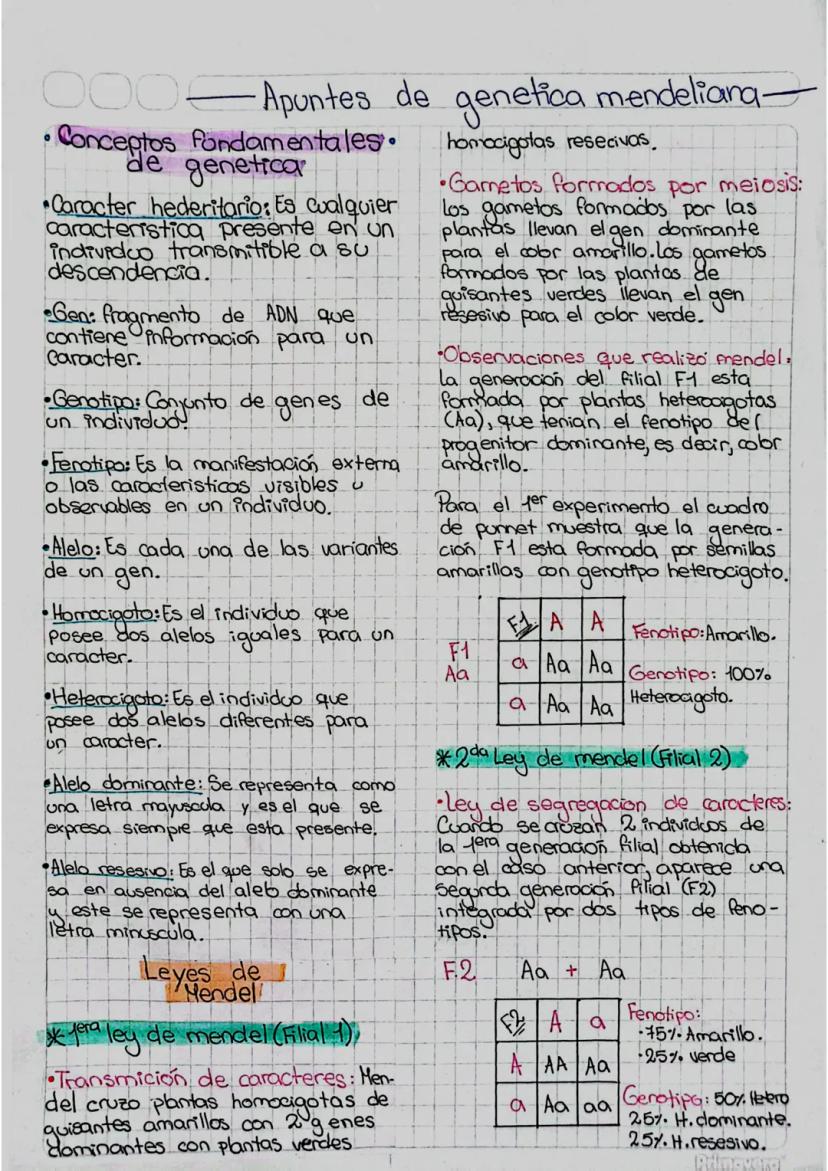 Apuntes de genetica mendeliana
• Conceptos fundamentales •
de genetica
• Caracter hederitario: Es cualquier
caracteristica presente en un
individuo transmitible a su
descendencia.
• Gen: fragmento de ADN que
contiene información para un
caracter.
• Genotipo: Conjunto de genes de
un individuo.
• Fenotipo: Es la manifestación externa
o las caracteristicas visibles u
observables en un individuo.
• Alelo: Es cada una de las variantes
de un gen.
• Homocigoto: Es el individuo que
posee dos alelos iguales para un
caracter.
• Heterocigoto: Es el individuo que
posee dos alelos diferentes para
un caracter.
• Alelo dominante: Se representa como
una letra mayuscula y es el que se
expresa siempre que esta presente.
• Alelo resesivo: Es el que solo se expre-
sa en ausencia del alelo dominante
y este se representa con una
letra minuscula.
Leyes de
Mendel
* 1era ley de mendel (Filial 1)
• Transmición de caracteres: Men-
del cruzo plantas homocigotas de
guisantes amarillos con 2 genes
dominantes con plantas verdes
homocigotas resecivas.
• Gametos formados por meiosis:
los gametos formados por las
plantas llevan el gen dominante
para el color amarillo. Los gametos
formados por las plantas de
guisantes verdes llevan el gen
resesivo para el color verde.
• Observaciones que realizó mendel:
la generación del filial F1 esta
formada por plantas heterocigotas
(Aa), que tenian el fenotipo del
progenitor dominante, es decir, color
amarillo.
Para el 1er experimento el cuadro
de punnet muestra que la genera-
ción F1 esta formada por semillas
amarillas con genotipo heterocigoto.
F1
Aa
F1 A A
a Aa Aa
a Aa Aa
Fenotipo: Amarillo.
Genotipo: 100%
Heterocigoto.
* 2da Ley de mendel (Filial 2)
• ley de segregacion de caracteres:
Cuando se cruzan 2 individuos de
la 1era generación filial obtenida
con el caso anterior, aparece una
segunda generación filial (F2)
integrada por dos tipos de feno-
tipos.
F.2 Aa + Aa
F2 A a
A AA Aa
a Aa aa
Fenotipo:
• 75% Amarillo.
• 25% verde
Genotipo: 50% Hetero
25% H. dominante.
25% H. resesivo.
Primavera